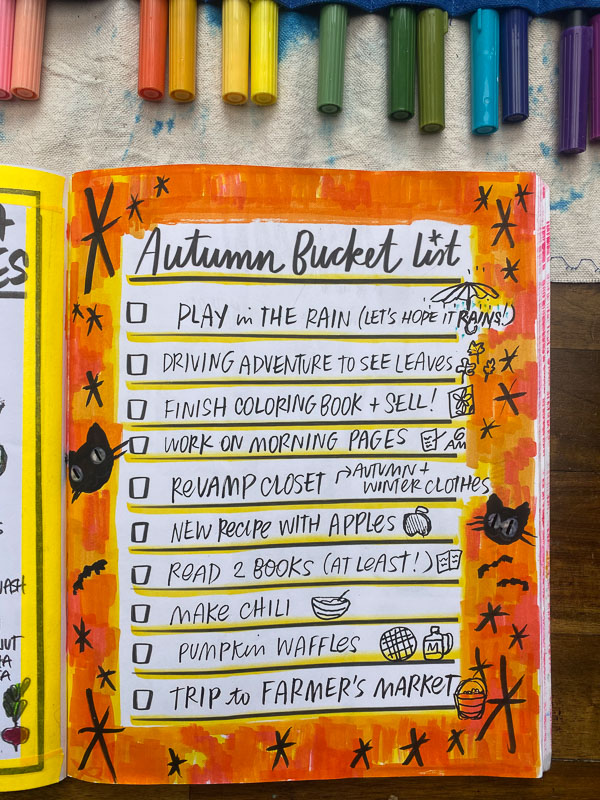 Autumn Bucket list
PLAY in THE RAIN (LET'S HOPE IT RAINS!)
DRIVING ADVENTURE TO SEE LEAVES
FINISH COLORING BOOK + SELL!
WORK ON MORNING PAGES
AM
REVAMP CLOSET → AUTUMN +
WINTER CLOTHES
NEW RECIPE WITH APPLES
READ 2 BOOKS (AT LEAST!)
MAKE CHILI
PUMPKIN WAFFLES
M
TRIP to FARMER'S MARKET